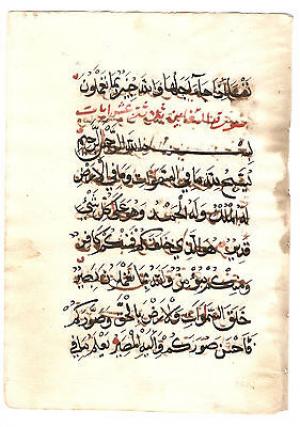 نفسا اذا جاء اجلها والله خبير بما تعملون
التغابن عشر ايات
بسم الله الرحمن الرحيم
يسبح لله ما في السموات وما في الارض
له الملك وله الحمد وهو على كل شيء
قدير هو الذي خلقكم فمنكم كافر
ومنكم مؤمن والله بما تعملون بصير
خلق السموات والارض بالحق وصوركم
فاحسن صوركم واليه المصير يعلم ما في